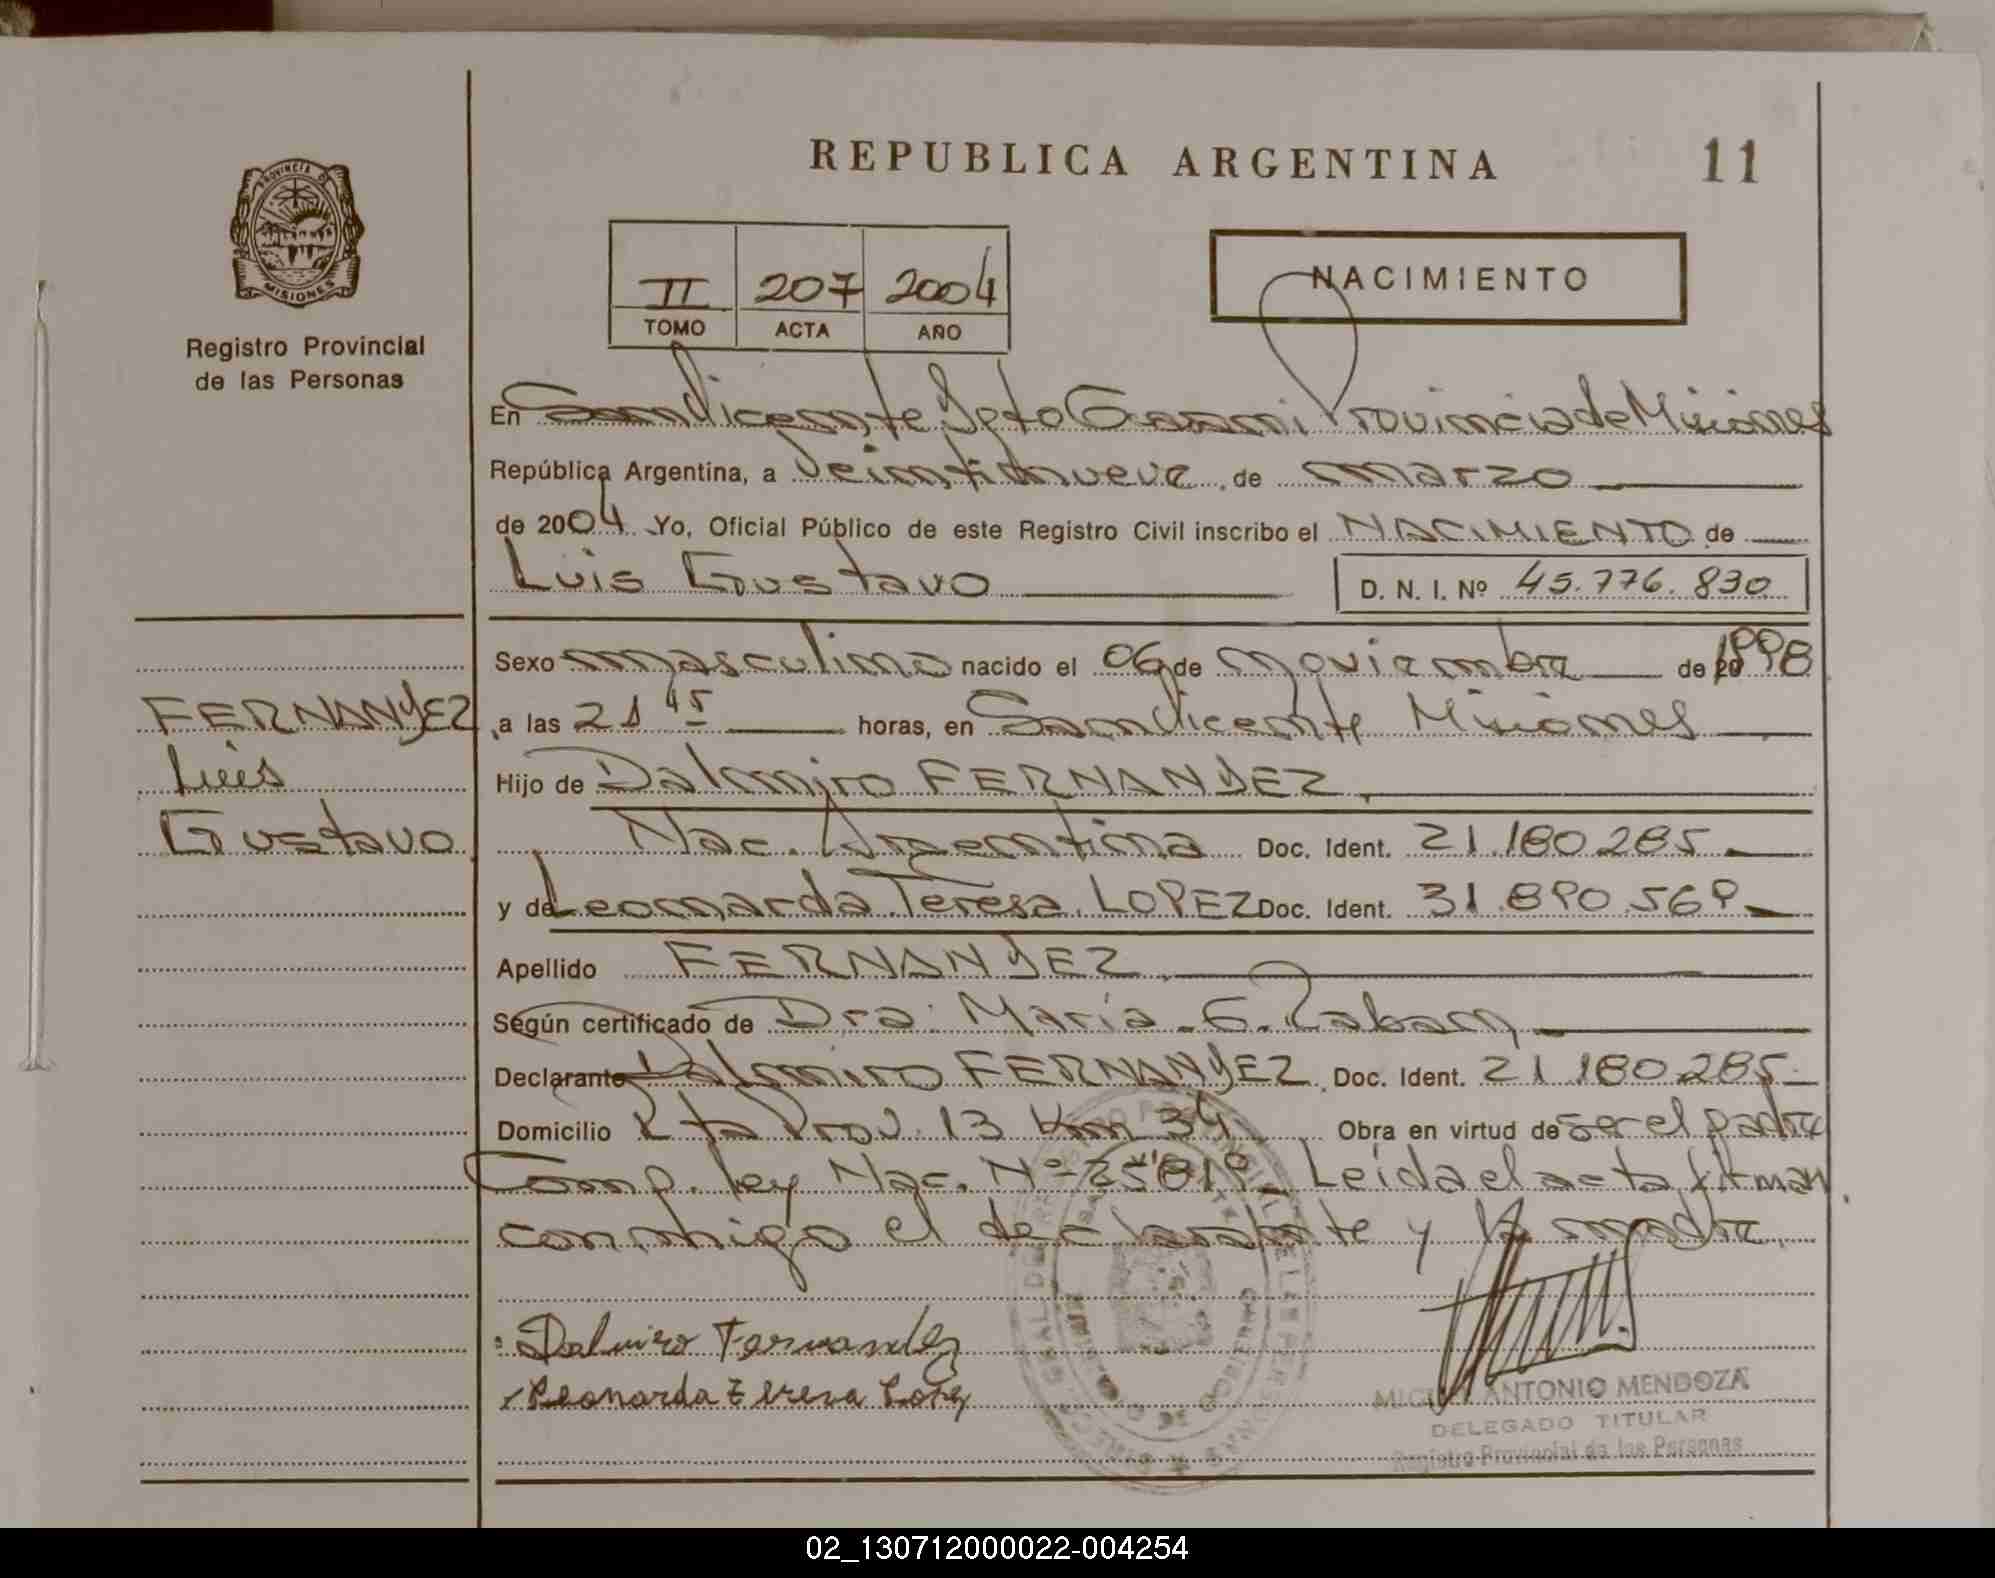 PROVINCIA DE
MISIONES
Registro Provincial
de las Personas
REPUBLICA ARGENTINA
11
II 207 2004
TOMO ACTA AÑO
NACIMIENTO
En San Vicente Dpto Guarani Provincia de Misiones
República Argentina, a Veintinueve de marzo
de 2004 Yo, Oficial Público de este Registro Civil inscribo el NACIMIENTO de
Luis Gustavo
D. N. I. Nº 45.776.830
Sexo masculino nacido el 06 de noviembre de 1998
FERNANDEZ
Luis
Gustavo
a las 21 45 horas, en San Vicente Misiones
Hijo de Dalmiro FERNANDEZ,
Nac. Argentina Doc. Ident. 21.180.285
y de Leonarda Teresa LOPEZ Doc. Ident. 31.890.569
Apellido FERNANDEZ
Según certificado de Dra. Maria G.
Declarante Dalmiro FERNANDEZ Doc. Ident. 21 180 285
Domicilio Rta Prov. 13 Km 34 Obra en virtud de ser el padre
Comp. ley Nac. Nº 25819 Leida el acta firman
conmigo el declarante y la madre.
Dalmiro Fernandez
Leonarda Teresa Lopez
MINISTERIO DE GOBIERNO
MIGUEL ANTONIO MENDOZA
DELEGADO TITULAR
Registro Provincial de las Personas
02_130712000022-004254